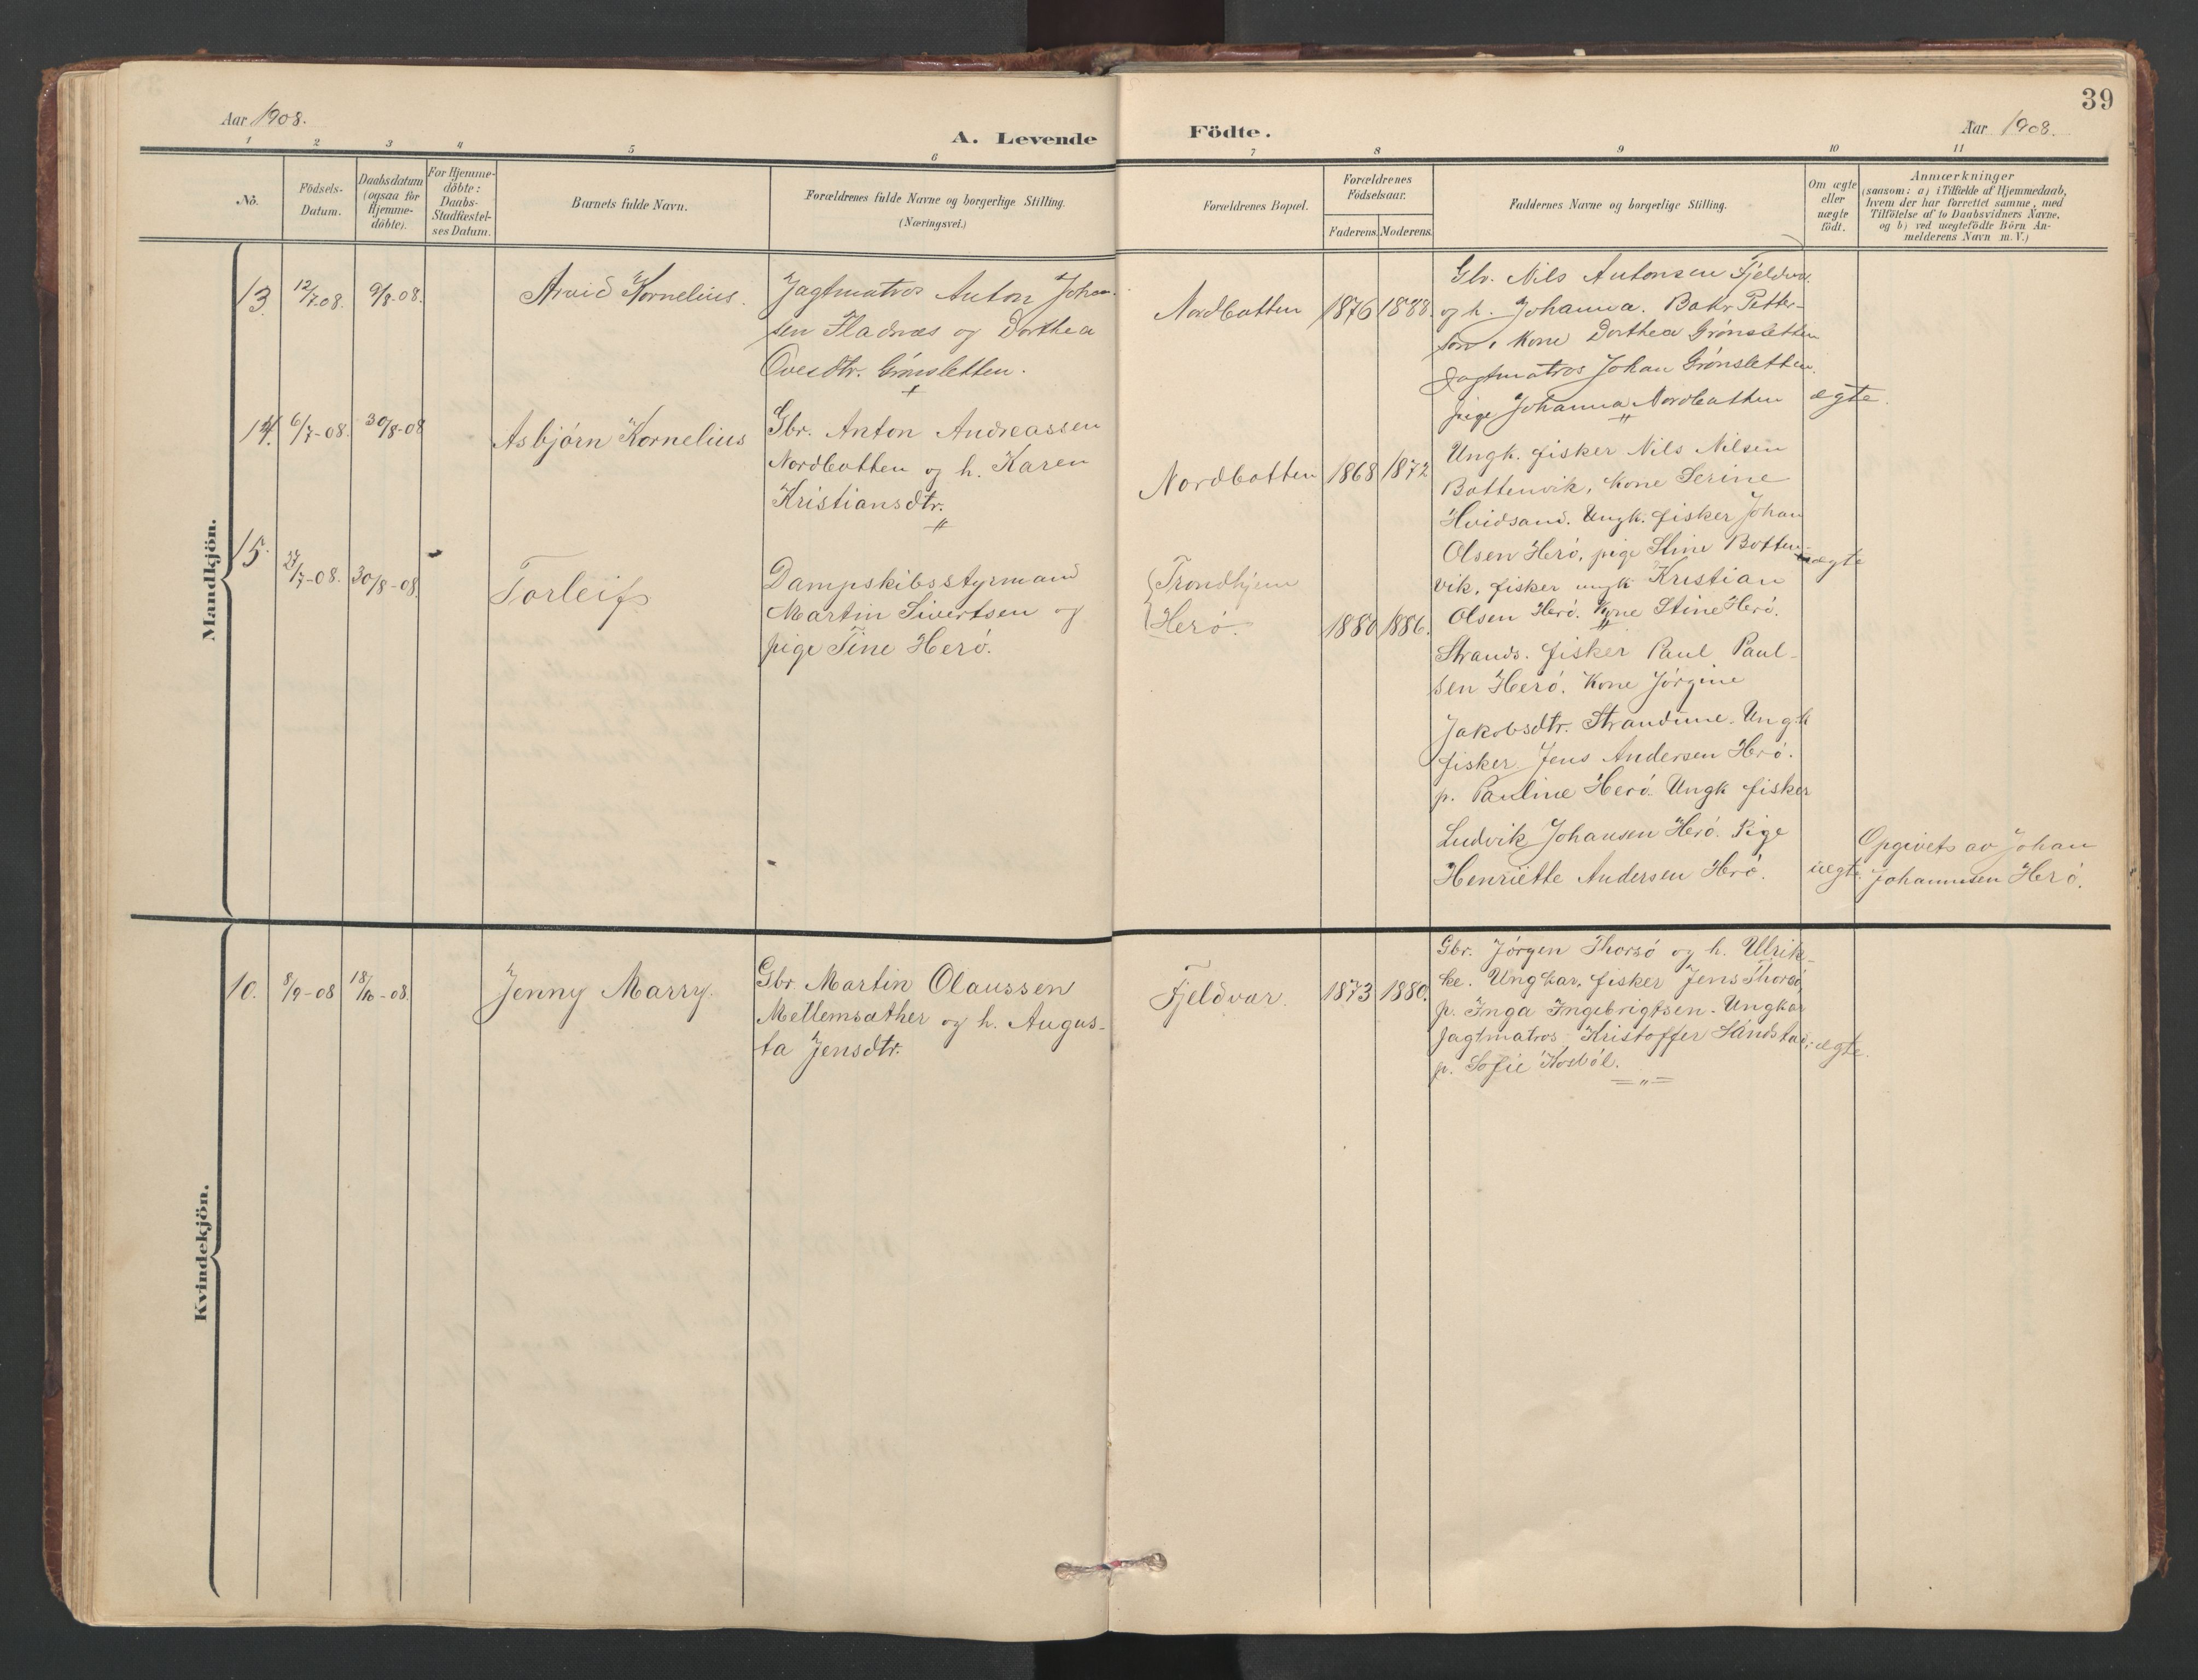 39
Aar 1908.
A. Levende Födte.
Aar 1908.
1 2 3 4 5 6 7 8 9 10 11
No.
Födsels-
Datum.
Daabsdatum
(ogsaa for
Hjemme-
döbte).
For Hjemme-
döbte:
Daabs-
Stadfæstel-
ses Datum.
Barnets fulde Navn.
Forældrenes fulde Navne og borgerlige Stilling.
(Næringsvei.)
Forældrenes Bopæl.
Forældrenes
Födselsaar.
Faderens. Moderens.
Faddernes Navne og borgerlige Stilling.
Om ægte
eller
uægte
födt.
Anmærkninger
(saasom: a) i Tilfælde af Hjemmedaab,
hvem der har forrettet samme, med
Tilföielse af to Daabsvidners Navne,
og b) ved uægtefödte Börn An-
melderens Navn m. V.)
Mandkjön.
13. 12/7 08. 9/8-08.
Arvid Kornelius.
Jagtmatros Anton Johan-
sen Fladnæs og Dorthea
Ovesdtr. Grönsletten.
Nordbotten 1876 1888.
Gbr. Nils Antonsen Fjeldvær
og h. Johanna. Petter-
sen, Kone Dorthea Grönsletten
Jagtmatros Johan Grönsletten.
pige Johanna Nordbotten
ægte.
14. 6/7-08. 30/8-08
Asbjörn Kornelius
Gbr. Anton Andreassen
Nordbotten og h. Karen
Kristiansdtr.
Nordbotten 1868 1872
Ungk. fisker Nils Nilsen
Bottenvik, kone Serine
Hvidsand. Ungk. fisker Johan
Olsen Herö, pige Stine Botten-
vik, fisker ungk Kristian
Olsen Herö. Kone Stine Herö.
ægte
15. 27/7-08. 30/8-08.
Torleif
Dampskibsstyrmand
Martin Sivertsen og
pige Tine Herö.
Trondhjem
Herö. 1880 1886.
Strands. fisker Paul Paul-
sen Herö. Kone Jörgine
Jakobsdtr. Strandune. Ungk
fisker Jens Andersen Herö.
p. Pauline Herö. Ungk fisker
Ludvik Johansen Herö. Pige
Henriette Andersen Herö.
uægte.
Opgivets av Johan
Johannesen Herö.
Kvindekjön.
10. 8/9-08 18/10-08.
Jenny Marry.
Gbr Martin Olaussen
Mellemsæther og h. Augus-
ta Jensdtr.
Fjeldvær. 1873 1880.
Gbr. Jörgen Thorsö og h. Ulrik-
ke. Ungkar. fisker Jens Thorsö,
p. Inga Ingebrigtsen. Ungkar
Jagtmatros Kristoffer Sandstad,
p. Sofie
ægte.